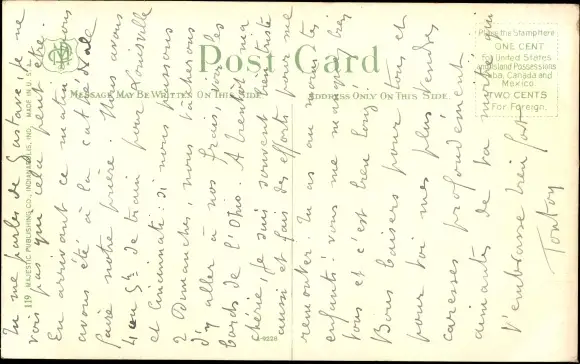 Post Card
MESSAGE MAY BE WRITTEN ON THIS SIDE
ADDRESS ONLY ON THIS SIDE
Place the Stamp Here
ONE CENT
For United States
and Island Possessions
Cuba, Canada and
Mexico.
TWO CENTS
For Foreign.
119 MAJESTIC PUBLISHING CO., INDIANAPOLIS, IND. MADE IN U.S.A.
Tu me parles de Gustave, je ne
vois pas que cela peut être.
En arrivant ce matin nous
avons été à la cathédrale
faire notre prière. Nous avons
4 ou 5h de train pour Louisville
et Cincinnati. Si nous passons
2 Dimanches, nous tâcherons
d'y aller à nos frais, voir les
bords de l'Ohio. A bientôt ma
chérie, je suis souvent bien triste
aussi et fais des efforts pour me
remonter. Tu as au moins tes
enfants : vous me manquez bien
tous et c'est bien long.
Bons baisers pour tous et
pour toi mes plus tendres
caresses profondément
aimantes de ta moitié qui
t'embrasse bien fort
Tonton